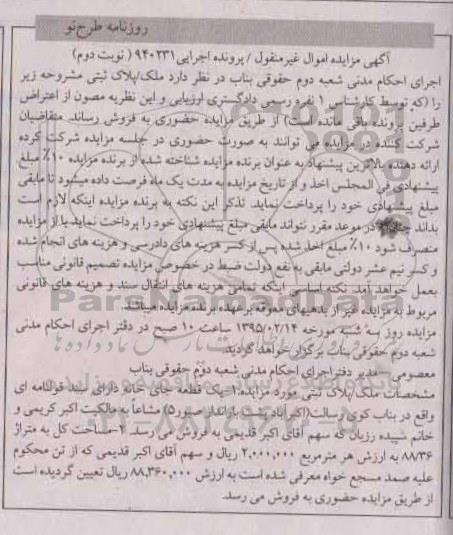 روزنامه طرح نو
آگهی مزایده اموال غیرمنقول / پرونده اجرایی ۹۴۰۲۳۱ ( نوبت دوم)
اجرای احکام مدنی شعبه دوم حقوقی بناب در نظر دارد ملک/پلاک ثبتی مشروحه زیر
را (که توسط کارشناس ۱ نفره رسمی دادگستری ارزیابی و این نظریه مصون از اعتراض
طرفین پرونده باقی مانده است) از طریق مزایده حضوری به فروش رساند. متقاضیان
شرکت کننده در مزایده می توانند به صورت حضوری در جلسه مزایده شرکت کرده
ارائه دهنده بالاترین پیشنهاد به عنوان برنده مزایده شناخته شده از برنده مزایده ۱۰٪ مبلغ
پیشنهادی فی المجلس اخذ و از تاریخ مزایده به مدت یک ماه فرصت داده میشود تا مابقی
مبلغ پیشنهادی خود را پرداخت نماید. تذکر این نکته به برنده مزایده اینکه لازم است
بداند چنانچه در موعد مقرر نتواند مابقی مبلغ پیشنهادی خود را پرداخت نماید یا از مزایده
منصرف شود ۱۰٪ مبلغ اخذ شده پس از کسر هزینه های دادرسی و هزینه های انجام شده
و کسر نیم عشر دولتی مابقی به نفع دولت ضبط در خصوص مزایده تصمیم قانونی مناسب
بعمل خواهد آمد. نکته اساسی اینکه تمامی هزینه های انتقال سند و هزینه های قانونی
مربوط به مزایده غیر از بدهیهای معوقه برعهده برنده مزایده میباشد.
مزایده روز سه شنبه مورخه ۱۳۹۵/۰۲/۱۴ ساعت ۱۰ صبح در دفتر اجرای احکام مدنی
شعبه دوم حقوقی بناب برگزار خواهد گردید.
معصومی - مدیر دفتر اجرای احکام مدنی شعبه دوم حقوقی بناب
مشخصات ملک/پلاک ثبتی مورد مزایده:۱-یک قطعه جای خانه دارای سند قولنامه ای
واقع در بناب کوی رسالت(اکبرآباد پشت یارانداز صبور۵) مشاعاً به مالکیت اکبر کریمی و
خانم سپیده رزبان که سهم آقای اکبر قدیمی به فروش می رسد. ۲-مساحت کل به متراژ
۸۸/۳۶ به ارزش هر مترمربع ۲,۰۰۰,۰۰۰ ریال و سهم آقای اکبر قدیمی که از تن محکوم
علیه صمد مسجع خواه معرفی شده است به ارزش ۸۸,۳۶۰,۰۰۰ ریال تعیین گردیده است
از طریق مزایده حضوری به فروش می رسد.
ParsNamadData